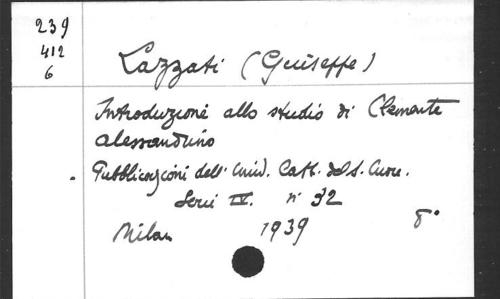 239
412
6
Lazzati (Giuseppe)
Introduzione allo studio di Clemente
alessandrino
Pubblicazioni dell' Univ. Catt. del S. Cuore.
Serie IV. n° 32
Milan 1939 8°